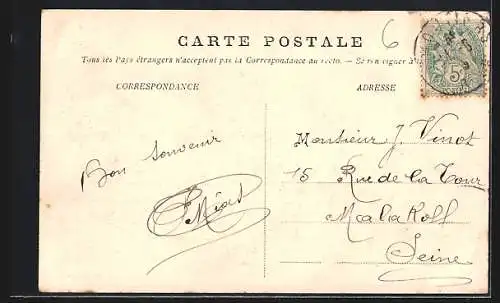 6
CARTE POSTALE
Tous les Pays étrangers n'acceptent pas la Correspondance au recto. — Se renseigner à la
CORRESPONDANCE
ADRESSE
5c
Bon souvenir
Monsieur J. Vinot
15 Rue de la Tour
Malakoff
Seine